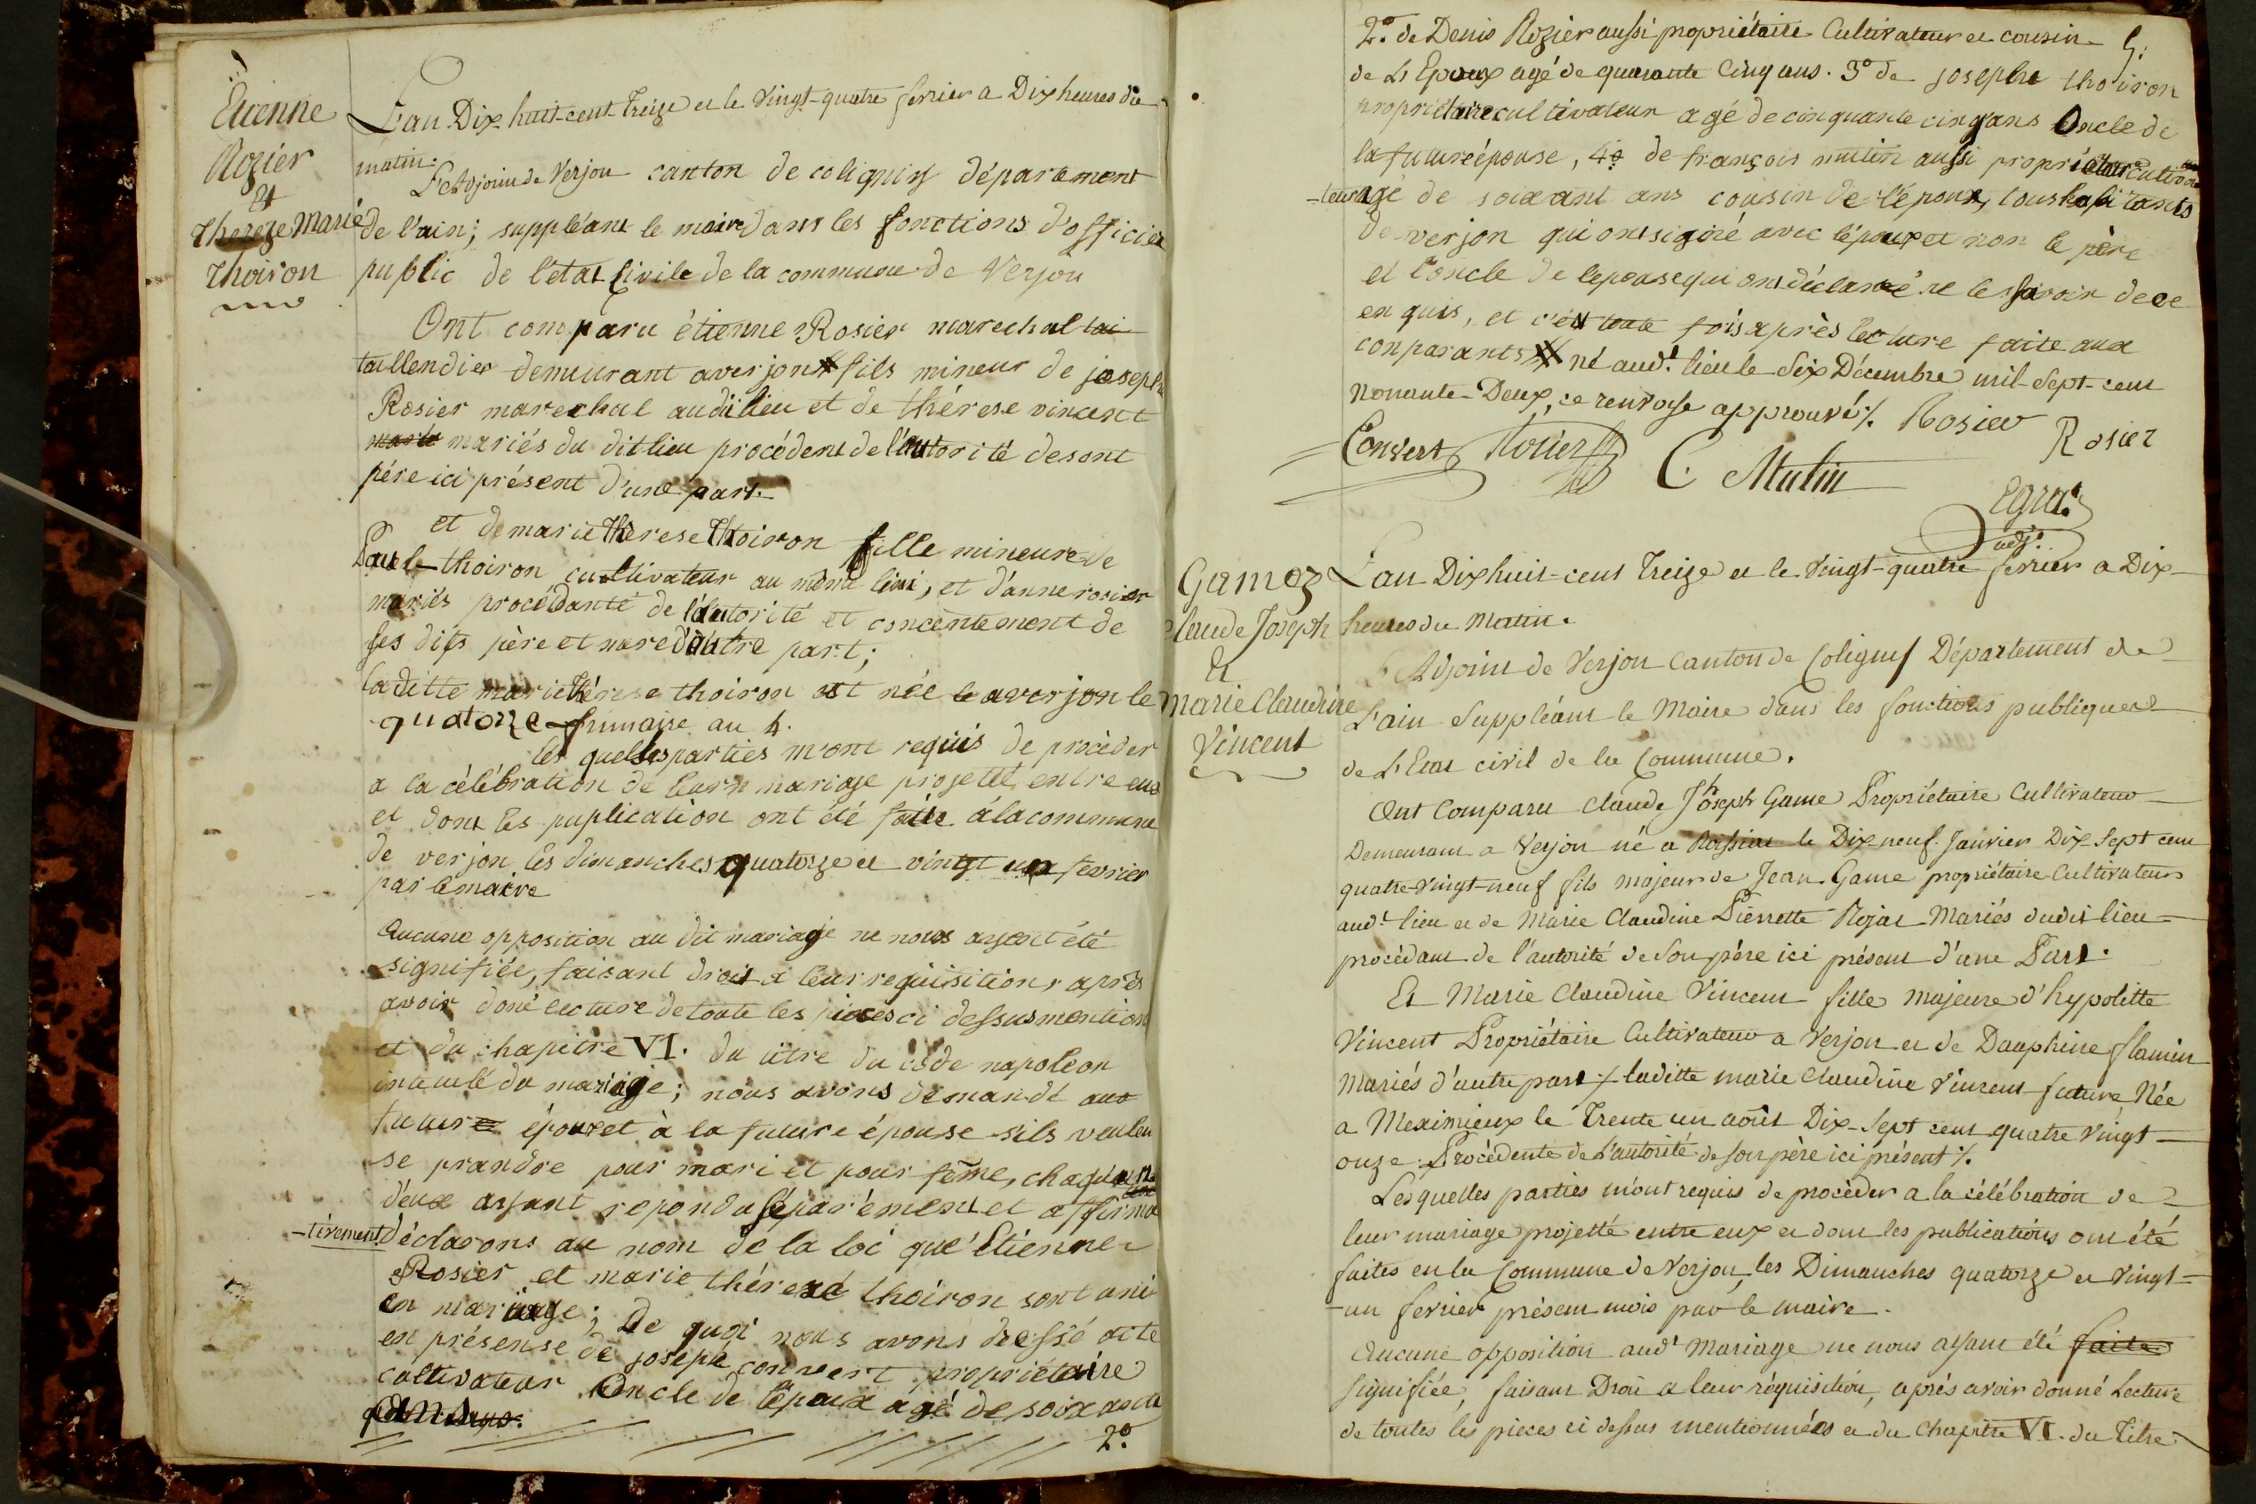 Etienne
Rozier
et
thereze Marie
thoiron
L'an Dix-huit-cent-Treize et le vingt-quatre ferrier a Dix heures du
matin.
L'Adjoint de Verjon canton de coligniy département
de l'ain; suppléant le maire dans les fonctions d'officier
public de l'état Civile de la commune de Verjon
Ont comparu étienne Rosier marechal tai
taillendier demeurant a verjon # fils mineur de joseph
Rosier marechal audit lieu et de thérese vincent
marié mariés du dit lieu procédent de l'autorité de sont
pére ici présent d'une part.
et de marie therese thoiron fille mineure de
Paul thoiron cultivateur au même lieu, et d'anne rosier
mariés procédante de l'autorité et concentement de
ses dits père et mere d'autre part;
laditte marie thérese thoiron est née le a verjon le
quatorze frimaire an 4.
les quelles parties m'ont requis de procèder
a la célébration de leurs mariage projetté entre eux
et dont les puplication ont été faite à la commune
de verjon les dimanches quatorze et vingt un fevrier
par le maire
Aucune opposition au dit mariage ne nous ayent été
signifiée, faisant droit a leur requisition, après
avoir doné lecture de toute les pieces ci dessus mention
et du chapitre VI. du titre du code napoléon
intitulé du mariage; nous avons demandé aux
future époux et à la future épouse s'ils veulen
se prandre pour mari et pour féme, chaqu'un
d'eux ayant repondu séparément et affirma
-tivement déclarons au nom de la loi que Etienne
Rosier et marie thérese thoiron sont uni
en mariage; De quoi nous avons dressé acte
en présense de joseph convert propriétaire
cultivateur Oncle de l'époux agé de soixante
2°
2°. de Denis Rozier aussi propriétaire Cultivateur et cousin 5.
de L'Epoux agé de quarante Cinq ans. 3° de josephe thoiron
propriétaire cultivateur agé de cinquante cinq ans Oncle de
la future épouse, 4° de françois mutin aussi propriétaire cultiva
-teur agé de soixant ans cousin de l'époux, tous habitants
de verjon qui ont signé avec l'époux et non le père
et l'oncle de l'epouse qui ont déclaré ne le savoir de ce
en quis, et c'est toute fois après lecture faite aux
conparants # né aud.t lieu le Six Décembre mil-Sept-cent
nonante-Deux, ce renvoye approuvé %. Rosier
Convert Rosier C. Mutin Rosier
Egra.
adj.t
Gamoz
Claude Joseph
et
Marie Claudine
Vincent
L'an Dix huit-cent Treize et le Vingt-quatre ferrier a Dix
heures du Matin.
L'Adjoint de Verjon Canton de Coligny Département de
L'ain Suppléant le Maire dans les fonctions publiques
de L'Etat civil de la Commune.
Ont Comparu Claude Joseph Game Propriétaire Cultivateur
Demeurant a Verjon né a le Dix neuf Janvier Dix Sept cent
quatre-Vingt-neuf fils majeur de Jean Game propriétaire Cultivateur
aud.t lieu et de Marie Claudine Pierrette Rojat Mariés dudit lieu
procédant de l'autorité de Son pére ici présent d'une Part.
Et Marie Claudine Vincent fille majeure d'hypolitte
Vincent Propriétaire Cultivateur a Verjon et de Dauphine flamin
Mariés d'autre part % laditte marie Claudine Vincent future Née
a Meximieux le Trente un août Dix-Sept cent quatre Vingt
onze. Procédente de L'autorité de son père ici présent %.
Lesquelles parties m'ont requis de procèder a la célébration de
leur mariage projetté entre eux et dont les publications ont été
faites en la Commune de Verjon les Dimanches quatorze et Vingt-
-un ferrier présent mois par le maire.
Aucune opposition aud.t Mariage ne nous ayant été faite
Signifiée, faisant Droit a leur réquisition, après avoir donné Lecture
de toutes les pieces ci dessus mentionnées et du Chapitre VI. du Titre